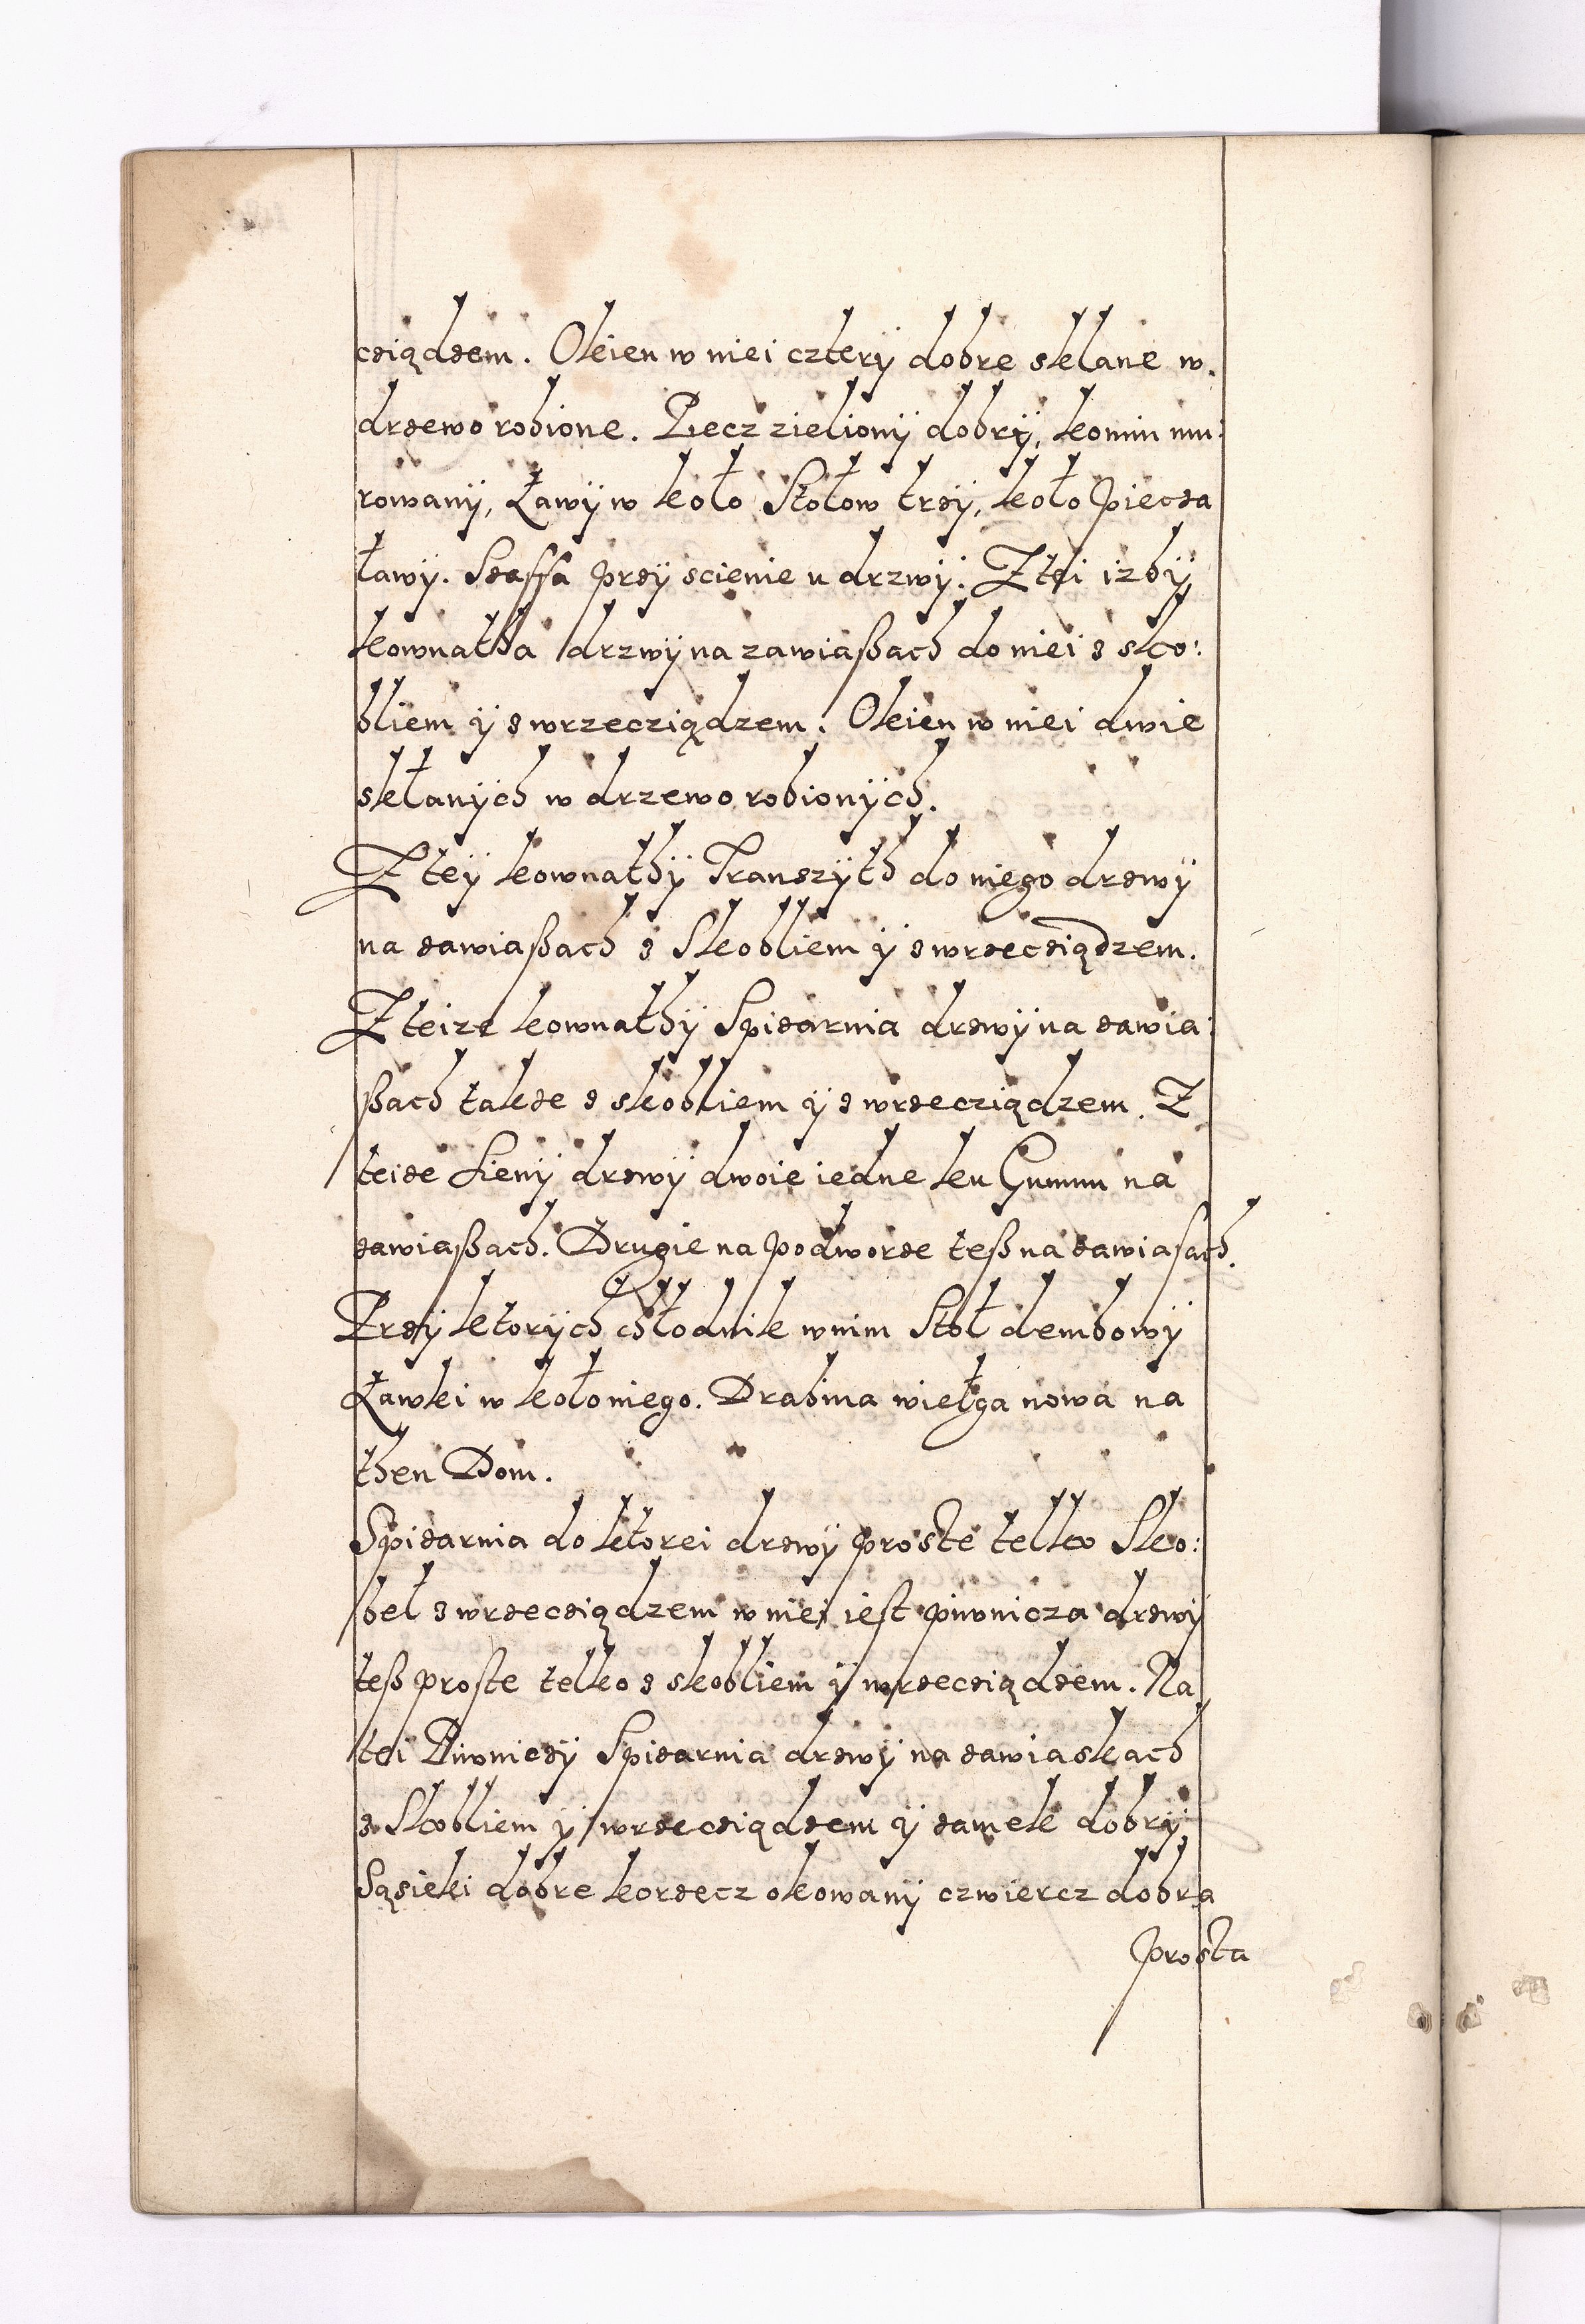 cziądzem. Okien w niei cztery dobre sklane w.
drzewo robione. Piecz zieliony dobry, komin mu:
rowany, Ławy w koło Stołow trzy, koło piecza
ławy. Szaffa przy scienie u drzwy. Z tei izby
kownatha drzwy na zawiaßach do niei z sko:
bliem y z wrzecziądzem. Okien w niei dwie
skłanych w drzewo robionych.
Z tey kownathy Transzyth do niego drzwy
na zawiaßach z Skobliem y z wrzecziądzem.
Z teize kownathy Spizarnia drzwy na zawia:
ßach takze z skobliem y z wrzecziądzem. Z
teize Sieny drzwy dwoie iedne ku Gumnu na
zawiaßach. Drugie na podworze teß na zawiasach.
Przy ktorych chłodnik wnim Stoł dembowy
Ławki w koło niego. Drabina wiełga nowa na
then Dom.
Spizarnia do ktorei drzwy proste telko Sko:
beł z wrzecziądzem w niei iest piwnicza drzwy
teß proste telko z skobliem y wrzecziądzem. Na
tei Piwniczy Spizarnia drzwy na zawiaskach
z Skobliem y wrzecziądzem y zamek dobry
Sąsieki dobre korzecz okowany czwiercz dobra
prosta